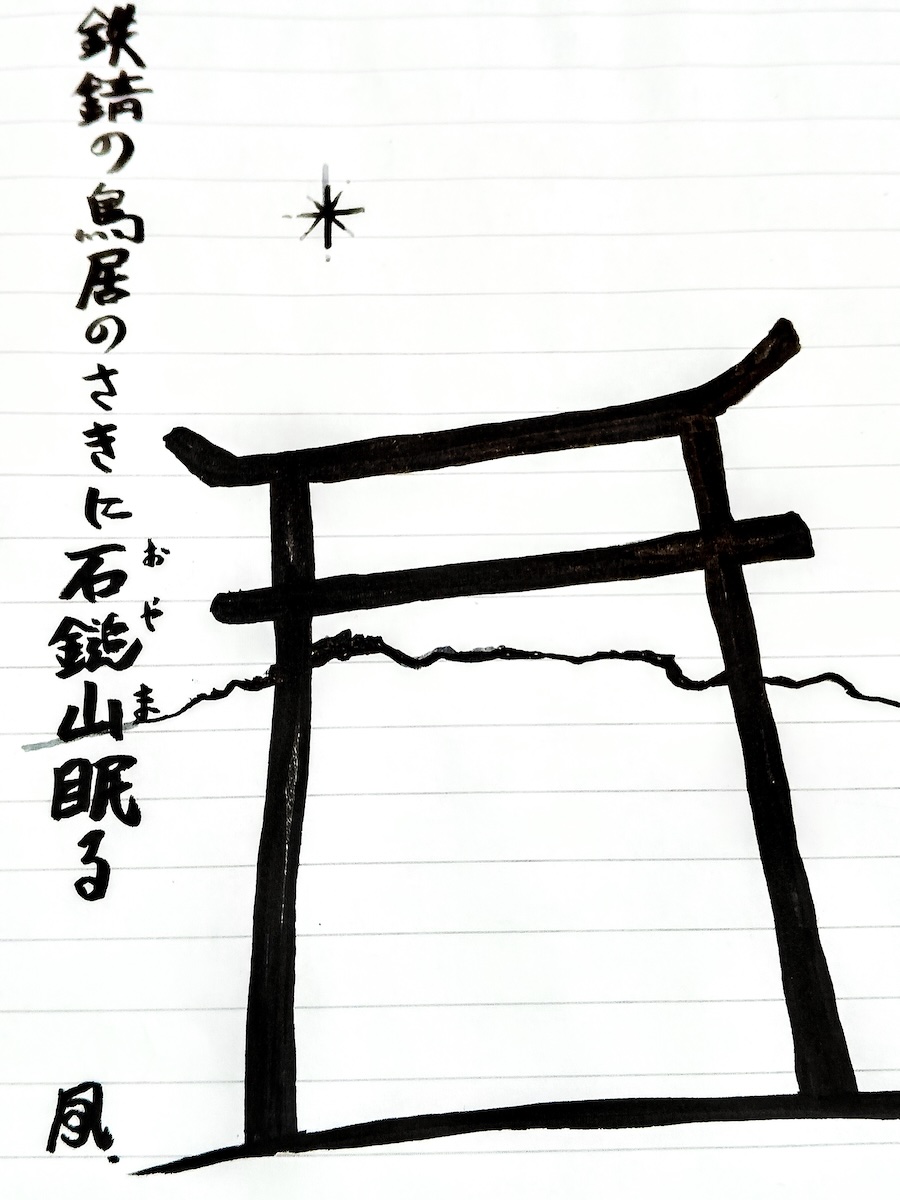 鉄錆の鳥居のさきに石鎚山眠る
おやま
風